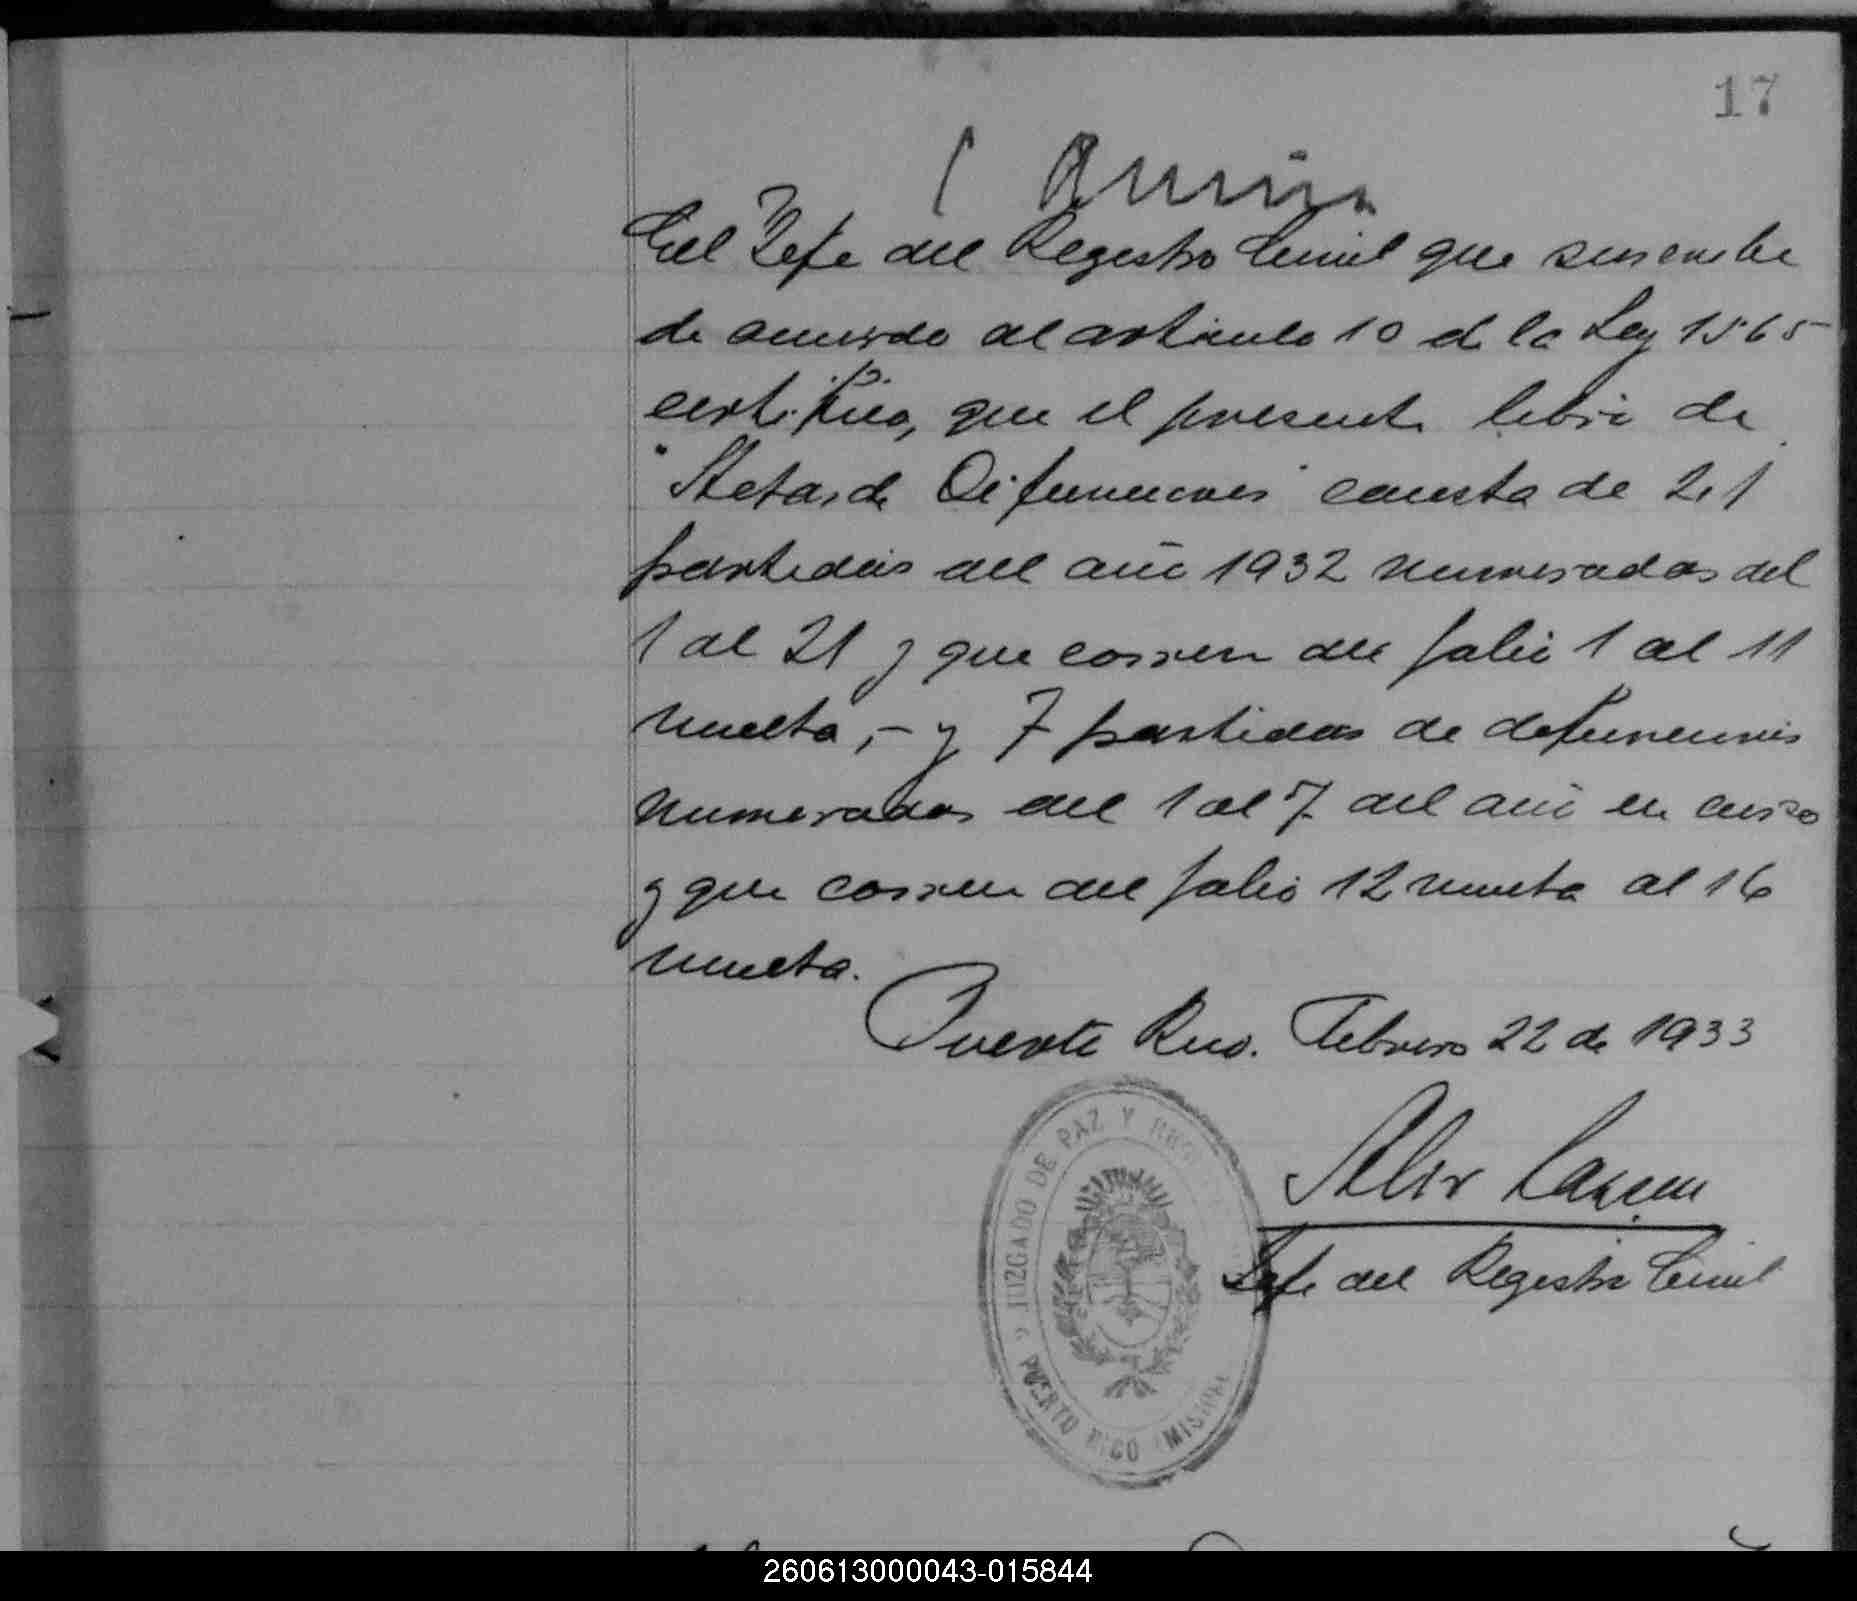 17
El Jefe del Registro Civil que suscribe
de acuerdo al artículo 10 de la Ley 1565
certifico, que el presente libro de
"Actas de Difunciones" consta de 21
partidas del año 1932 numeradas del
1 al 21 y que corren del folio 1 al 11
vuelta,- y 7 partidas de defunciones
numeradas del 1 al 7 del año en curso
y que corren del folio 12 vuelta al 16
vuelta.
Puerto Rico. Febrero 22 de 1933
Jefe del Registro Civil
JUZGADO DE PAZ Y
PUERTO RICO (MISIONES
260613000043-015844